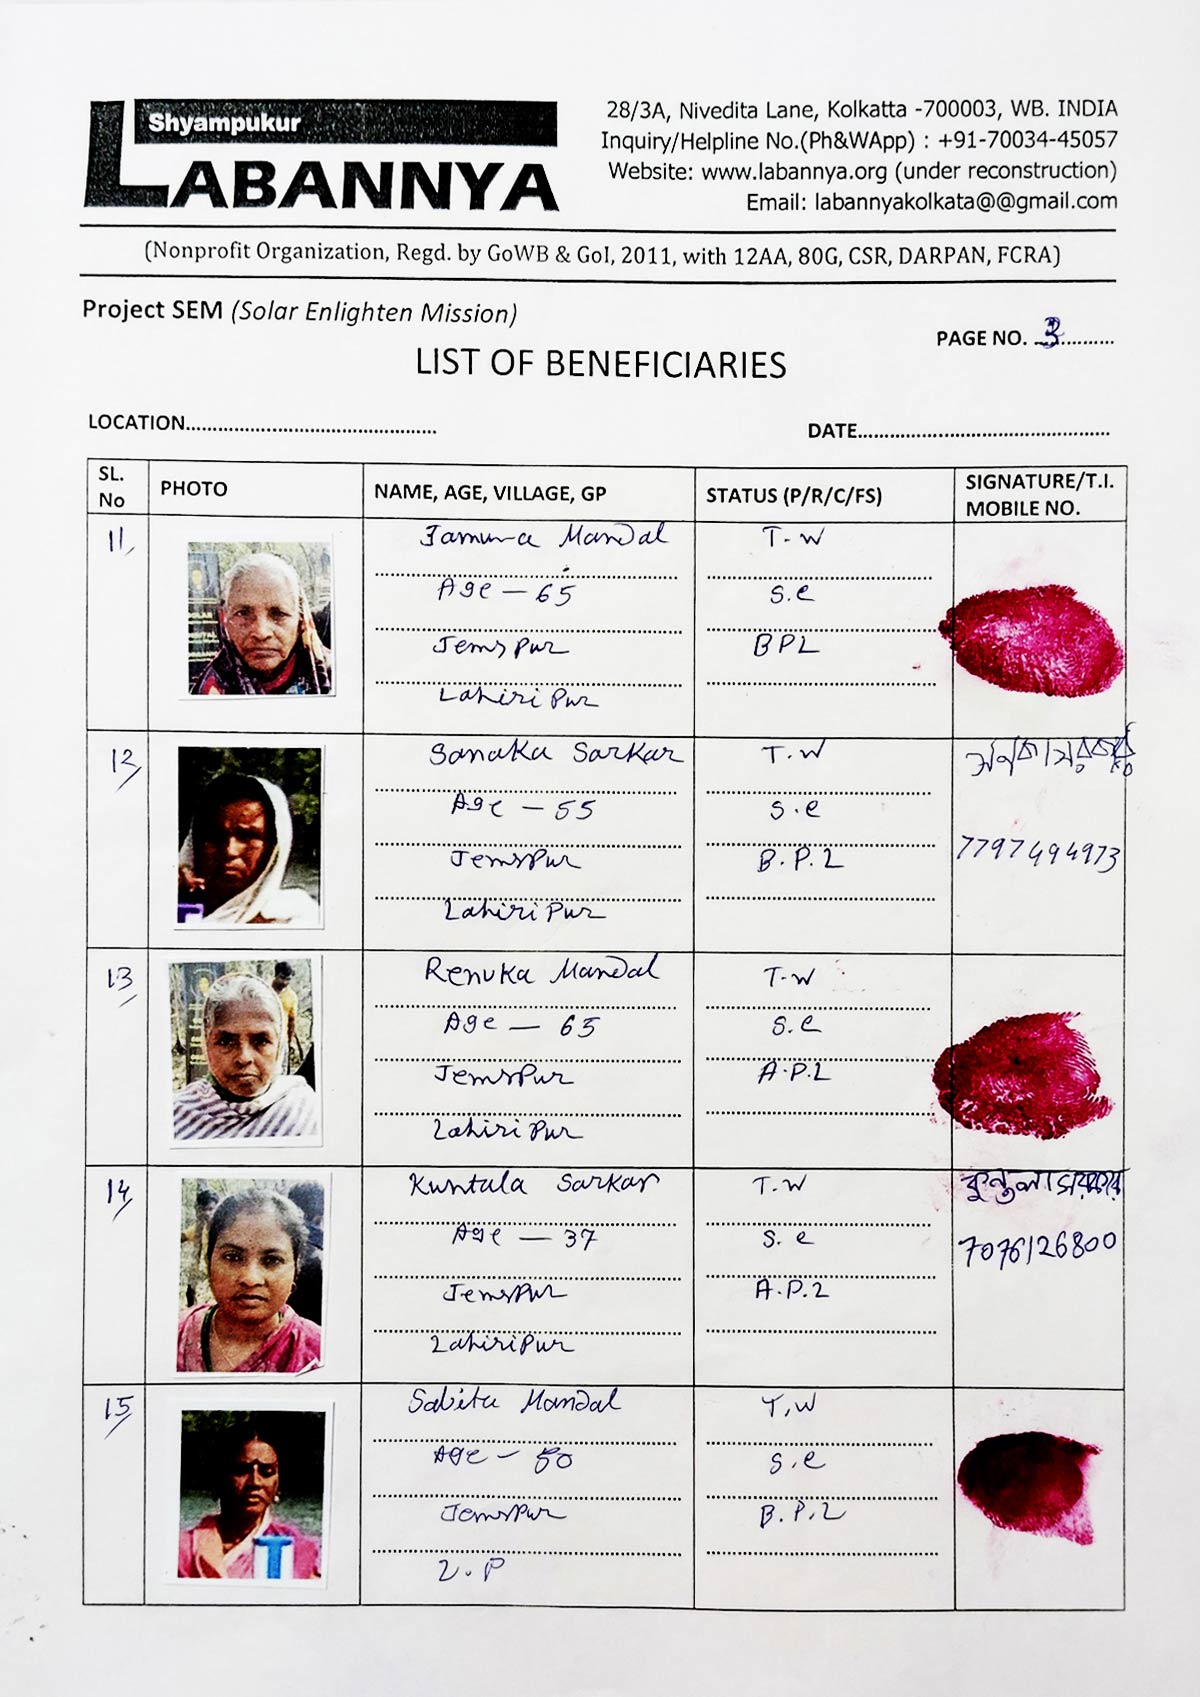 Shyampukur
LABANNYA
28/3A, Nivedita Lane, Kolkatta -700003, WB. INDIA
Inquiry/Helpline No.(Ph&WApp) : +91-70034-45057
Website: www.labannya.org (under reconstruction)
Email: labannyakolkata@@gmail.com
(Nonprofit Organization, Regd. by GoWB & GoI, 2011, with 12AA, 80G, CSR, DARPAN, FCRA)
Project SEM (Solar Enlighten Mission)
PAGE NO. 3
LIST OF BENEFICIARIES
LOCATION
DATE
SL. No PHOTO NAME, AGE, VILLAGE, GP STATUS (P/R/C/FS) SIGNATURE/T.I. MOBILE NO.
11, Jamuna Mandal T.W
Age - 65 S.C
Jemspur BPL
Lahiripur
12, Sanaka Sarkar T.W সনকা সরকার
Age - 55 S.C
Jemspur B.P.L 7797494973
Lahiripur
13, Renuka Mandal T.W
Age - 65 S.C
Jemspur A.P.L
Lahiripur
14, Kuntala Sarkar T.W কুন্তলা সরকার
Age - 37 S.C 7076126800
Jemspur A.P.L
Lahiripur
15, Sabita Mandal T.W
Age - 50 S.C
Jemspur B.P.L
L.P